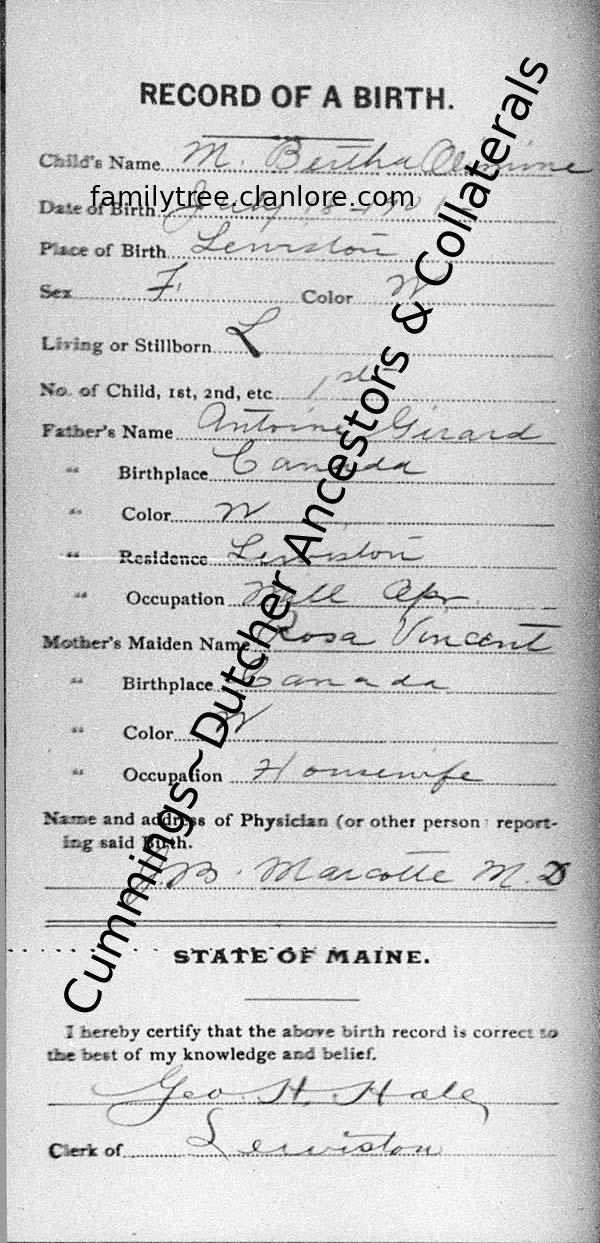 RECORD OF A BIRTH.
Child's Name M. Bertha
familytree.clanlore.com
Date of Birth July 18-190
Place of Birth Lewiston
Sex F. Color W
Living or Stillborn L
No. of Child, 1st, 2nd, etc 1st
Father's Name Antoine Girard
" Birthplace Canada
" Color W
" Residence Lewiston
" Occupation Mill Opr.
Mother's Maiden Name Rosa Vincent
" Birthplace Canada
" Color W
" Occupation Housewife
Name and address of Physician (or other person report-
ing said Birth.
B. Marcotte M.D
STATE OF MAINE.
I hereby certify that the above birth record is correct to
the best of my knowledge and belief.
Geo. H. Hale
Clerk of Lewiston
Cummings~Dutcher Ancestors & Collaterals